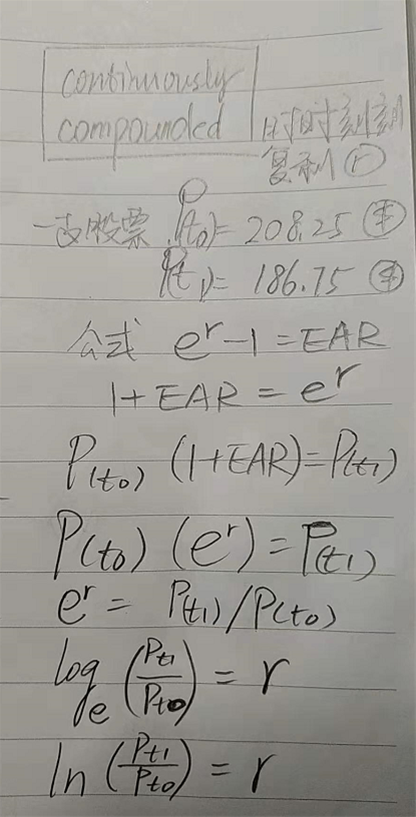 continuously
compounded
时时刻刻
复利 r
一支股票 P(t₀) = 208.25 羊
P(t₁) = 186.75 羊
公式 eʳ - 1 = EAR
1 + EAR = eʳ
P(t₀) (1+EAR) = P(t₁)
P(t₀) (eʳ) = P(t₁)
eʳ = P(t₁) / P(t₀)
logₑ (Pt₁/Pt₀) = r
ln (Pt₁/Pt₀) = r